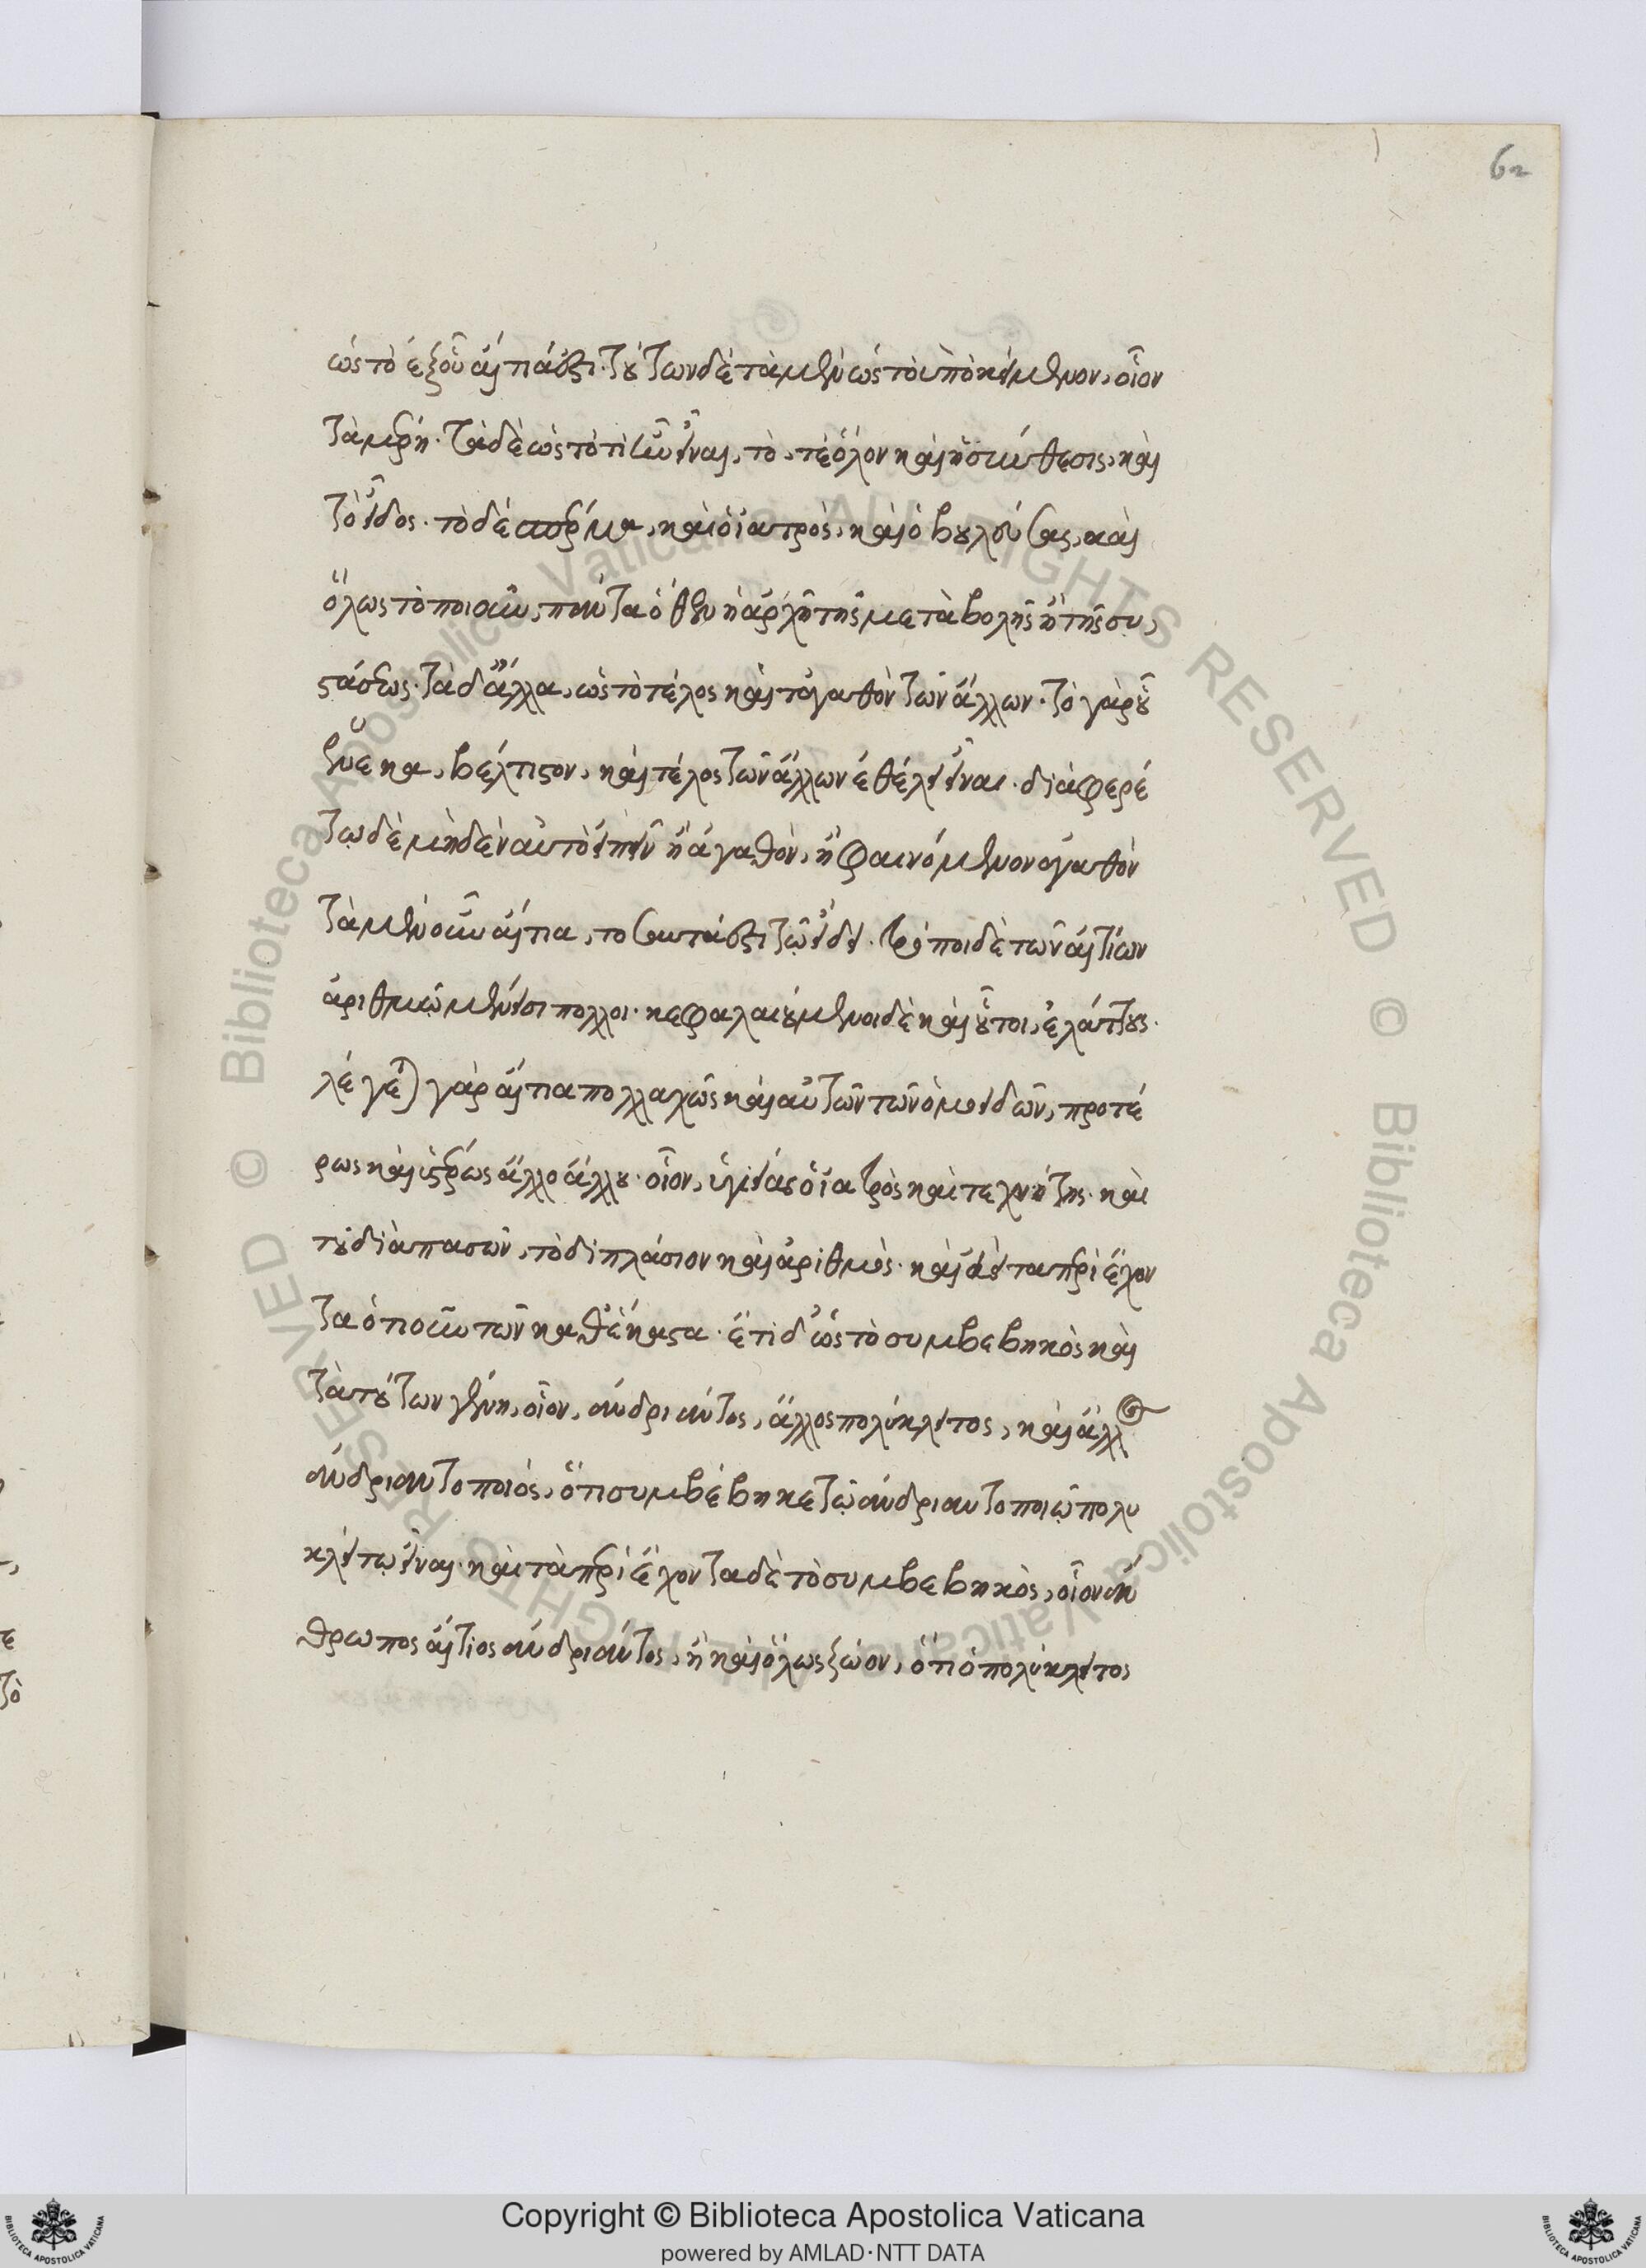 62
ὡς τὸ ἐξ οὗ αἴτιά ἐστι· τούτων δὲ τὰ μὲν ὡς τὸ ὑποκείμενον, οἷον
τὰ μέρη· τὰ δὲ ὡς τὸ τί ἦν εἶναι, τό, τε ὅλον καὶ ἡ σύνθεσις, καὶ
τὸ εἶδος· τὸ δὲ σπέρμα, καὶ ὁ ἰατρὸς, καὶ ὁ βουλεύσας, καὶ
ὅλως τὸ ποιοῦν, πάντα ὅθεν ἡ ἀρχὴ τῆς μεταβολῆς ἢ τῆς συ,
στάσεως· τὰ δ' ἄλλα, ὡς τὸ τέλος καὶ τἀγαθὸν τῶν ἄλλων· τὸ γὰρ οὗ
ἕνεκα, βέλτιστον, καὶ τέλος τῶν ἄλλων ἐθέλει εἶναι· διαφερέ
τω δὲ μηδὲν αὐτὸ εἰπεῖν ἢ ἀγαθὸν, ἢ φαινόμενον ἀγαθὸν
τὰ μὲν οὖν αἴτια, τοσαῦτά ἐστι τῷ εἴδει· τρόποι δὲ τῶν αἰτίων
ἀριθμῷ μέν εἰσι πολλοι· κεφαλαιούμενοι δὲ καὶ οὗτοι, ἐλάττους·
λέγεται γὰρ αἴτια πολλαχῶς καὶ αὐτῶν τῶν ὁμοειδῶν, προτέ
ρως καὶ ὑστέρως ἄλλο ἄλλου· οἷον, ὑγιείας ὁ ἰατρὸς καὶ τεχνίτης· καὶ
τοῦ διαπασῶν, τὸ διπλάσιον καὶ ἀριθμός· καὶ ἀεὶ τὰ περιέχον
τα ὁτιοῦν τῶν καθ' ἕκαστα· ἔτι δ' ὡς τὸ συμβεβηκὸς καὶ
τὰ τούτων γένη, οἷον, ἀνδριάντος, ἄλλος πολύκλειτος, καὶ ἄλλως
ἀνδριαντοποιός, ὅτι συμβέβηκε τῷ ἀνδριαντοποιῷ πολυ
κλείτῳ εἶναι· καὶ τὰ περιέχοντα δὲ τὸ συμβεβηκὸς, οἷον ἄν
θρωπος αἴτιος ἀνδριάντος, ἢ καὶ ὅλως ζῷον, ὅτι ὁ πολύκλειτος
© Biblioteca Apostolica Vaticana ALL RIGHTS RESERVED © Biblioteca Apostolica Vaticana ALL RIGHTS RESERVED
Copyright © Biblioteca Apostolica Vaticana
powered by AMLAD·NTT DATA
BIBLIOTECA APOSTOLICA VATICANA
BIBLIOTECA APOSTOLICA VATICANA